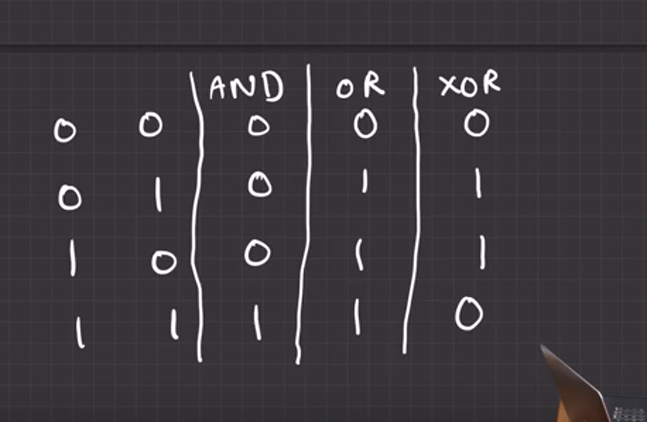 AND OR XOR
0 0 0 0 0
0 1 0 1 1
1 0 0 1 1
1 1 1 1 0